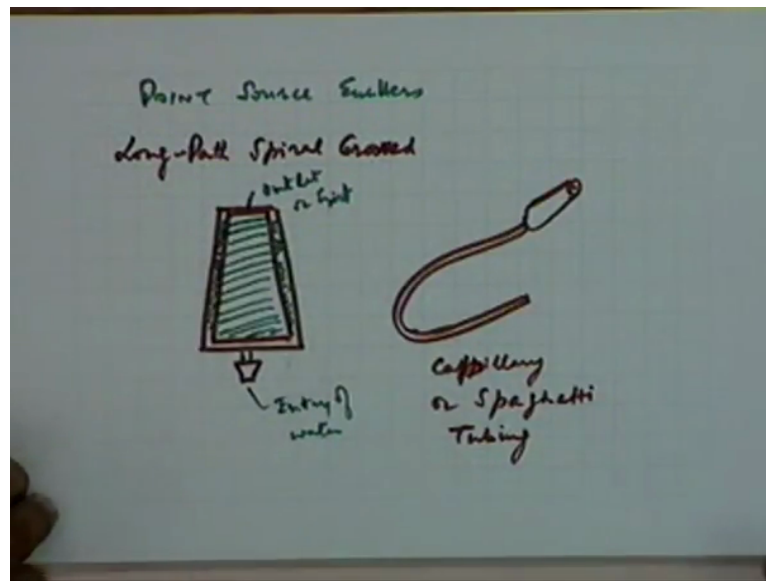 Point Source Emitters
Long-Path Spiral Grooved
outlet
or Exit
Entry of
water
Cappillary
or Spaghetti
Tubing